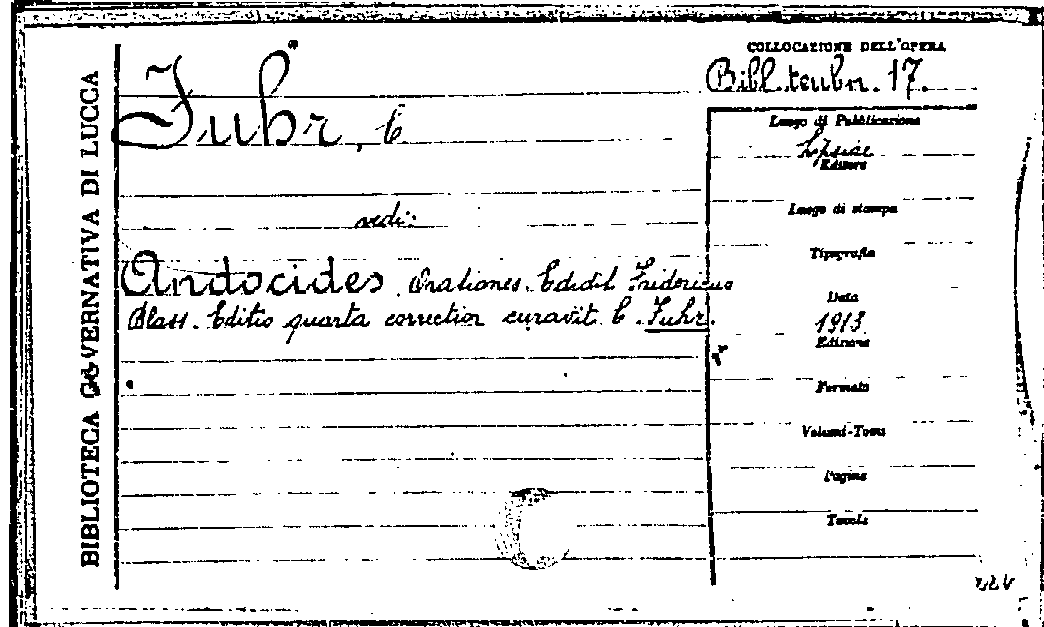 BIBLIOTECA GOVERNATIVA DI LUCCA
COLLOCAZIONE DELL'OPERA
Bibl. teubn. 17.
Fuhr, C
vedi:
Andocides. Orationes. Edidit Fridericus
Blass. Editio quarta correctior curavit C. Fuhr.
Luogo di Pubblicazione
Lipsiae
Editore
Luogo di stampa
Tipografia
Data
1913
Edizione
Formato
Volumi-Tomi
Pagine
Tavole